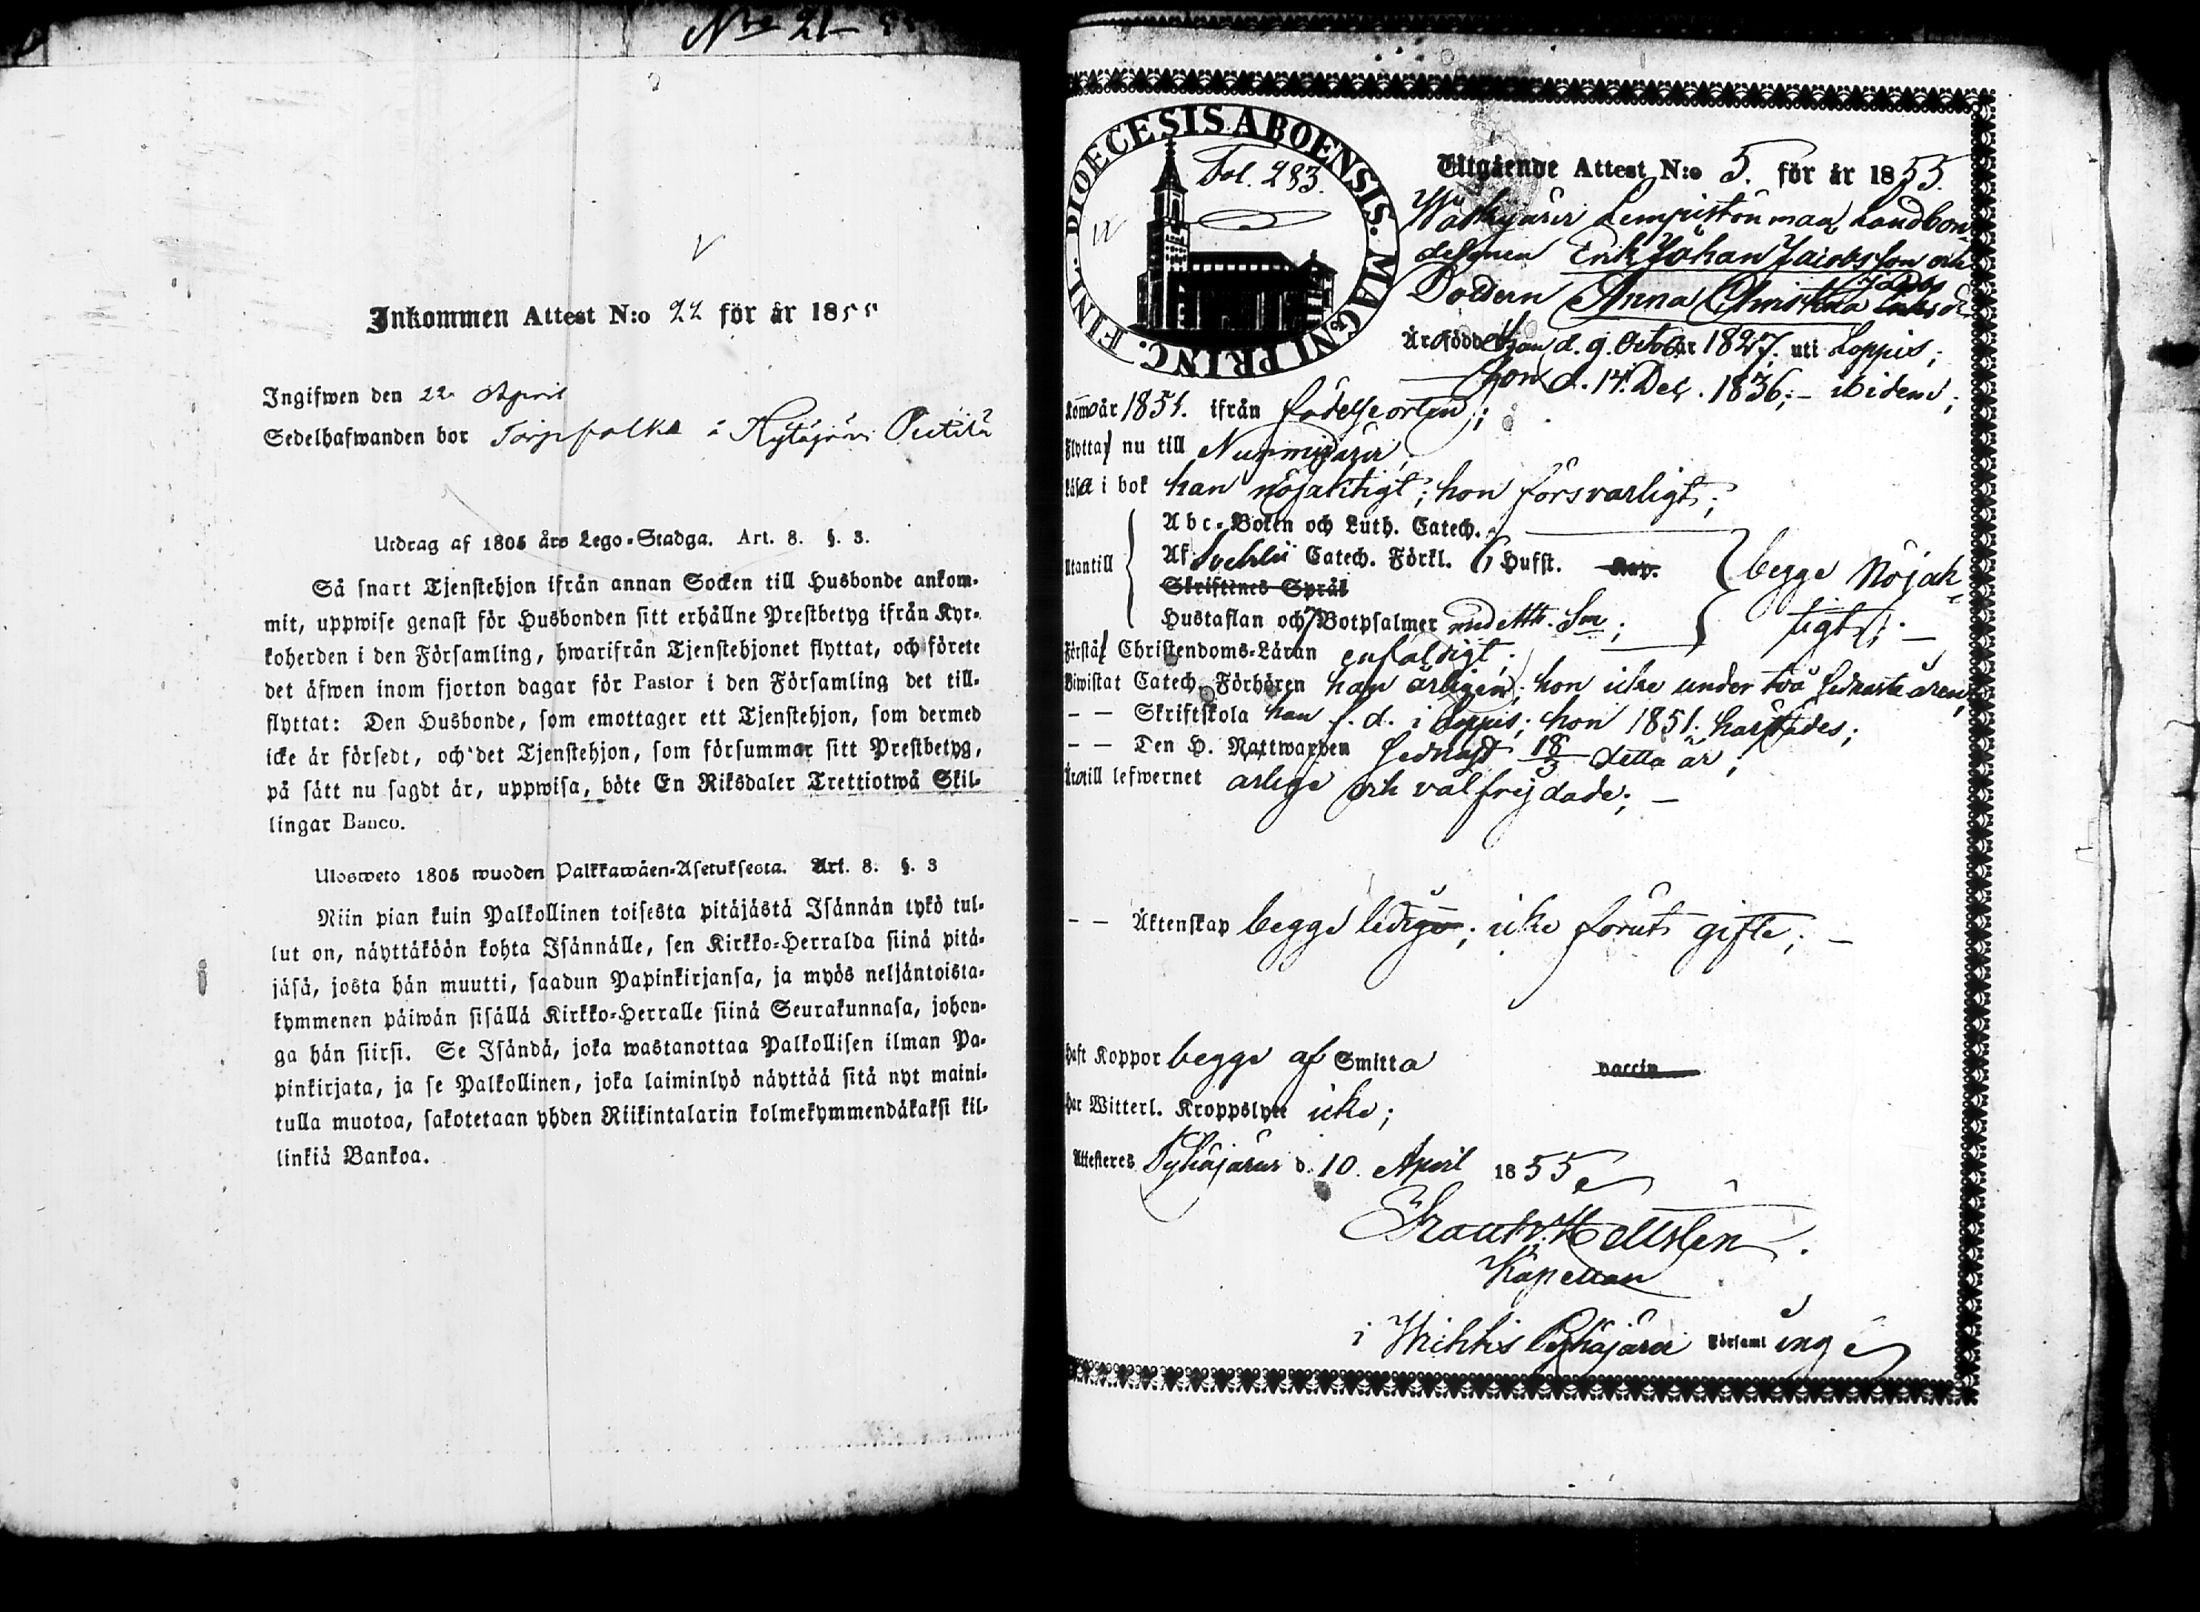 N:o 21
Inkommen Attest N:o 22 för år 1855
Ingifwen den 22 April
Sedelhafwanden bor Torpfolke i Hytäjärvi
Utdrag af 1805 års Lego-Stadga. Art. 8. §. 3.
Så snart Tjenstehjon ifrån annan Socken till Husbonde ankom-
mit, uppwise genast för Husbonden sitt erhållne Prestbetyg ifrån Kyr-
koherden i den Församling, hwarifrån Tjenstehjonet flyttat, och förete
det äfwen inom fjorton dagar för Pastor i den Församling det till-
flyttat: Den Husbonde, som emottager ett Tjenstehjon, som dermed
icke är försedt, och det Tjenstehjon, som försummar sitt Prestbetyg,
på sätt nu sagdt är, uppwisa, böte En Riksdaler Trettiotwå Skil-
lingar Banco.
Ulosweto 1805 wuoden Palkkawäen-Asetuksesta. Art. 8. §. 3
Niin pian kuin Palkollinen toisesta pitäjästä Isännän tykö tul-
lut on, näyttäköön kohta Isännälle, sen Kirkko-Herralda siinä pitä-
jäsä, josta hän muutti, saadun Papinkirjansa, ja myös neljäntoista-
kymmenen päiwän sisällä Kirkko-Herralle siinä Seurakunnasa, johon-
ga hän siirsi. Se Isändä, joka wastanottaa Palkollisen ilman Pa-
pinkirjata, ja se Palkollinen, joka laiminlyö näyttää sitä nyt maini-
tulla muotoa, sakotetaan yhden Riikintalarin kolmekymmendäkaksi kil-
linkiä Bankoa.
DIOECESIS ABOENSIS. MAGNI PRINC. FINL.
Fol. 283.
Utgående Attest N:o 5. för år 1855.
Landbon-
Erik Johan Jacobsson och
Anna Christina
Är född han d. 9. Octob. år 1827. uti Loppis;
hon d. 14. Dec. 1836; – ibidem;
Kom år 1854. ifrån födelseorten;
Flyttar nu till Nummijärvi;
Läsa i bok han nöjaktigt; hon försvarligt;
Abc-Boken och Luth. Catech.
Utantill Af Svebelii Catech. Förkl. 6 Hufst. begge Nöjak-
Skriftenes Språk
Hustaflan och 7 Botpsalmer med Ath. Sm; tigt; –
Förstår Christendoms-Läran enfaldigt;
Biwistat Catech. Förhören han årligen; hon icke under två sednaste åren,
– – Skriftskola han f. d. i Loppis; hon 1851. härstädes;
– – Den H. Nattwarden sednast 18/3 detta år;
Äro till lefwernet ärlige och välfrejdade; –
– – Äktenskap begge ledige; icke förut gifte; –
Haft Koppor begge af Smitta vaccin
Har Witterl. Kroppslyte icke;
Attesteres Pyhäjärvi d. 10. April 1855
Kapellan
i Wichtis Pyhäjärvi Församling